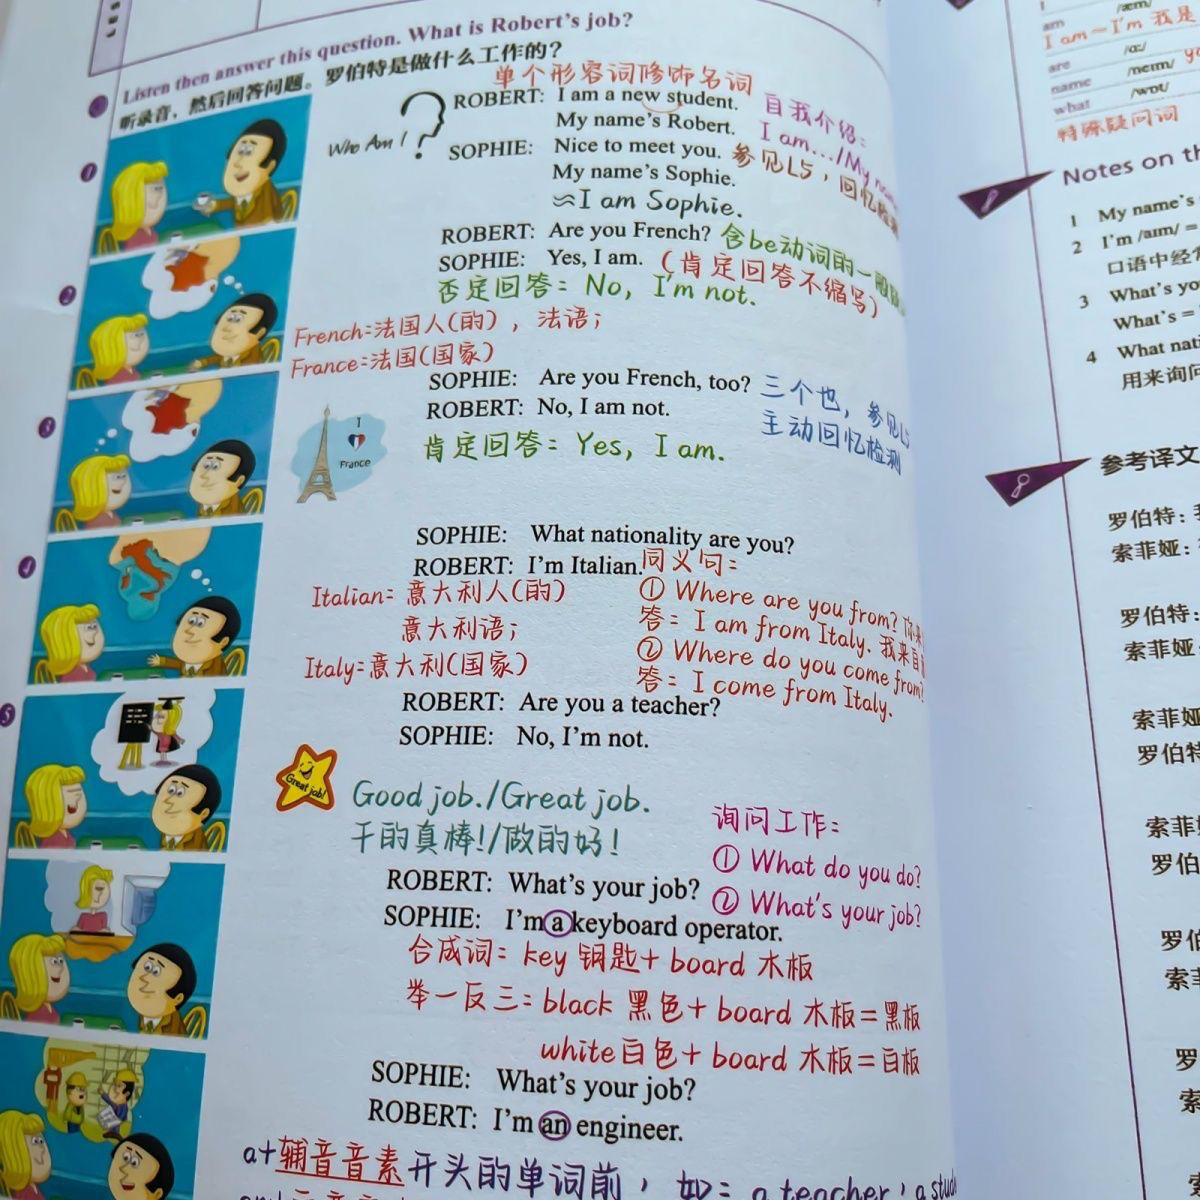 Listen then answer this question. What is Robert's job?
听录音，然后回答问题。罗伯特是做什么工作的？
单个形容词修饰名词
Who Am I ?
ROBERT: I am a new student.
My name's Robert.
自我介绍：
I am.../My
SOPHIE: Nice to meet you.
参见L5，回忆
My name's Sophie.
≈I am Sophie.
ROBERT: Are you French?
含be动词的一般
SOPHIE: Yes, I am.
(肯定回答不缩写)
否定回答：No, I'm not.
French=法国人(的)，法语；
France=法国(国家)
SOPHIE: Are you French, too?
三个也，参见L5
ROBERT: No, I am not.
主动回忆检测
肯定回答：Yes, I am.
I
France
SOPHIE: What nationality are you?
ROBERT: I'm Italian.
同义句：
Italian=意大利人(的)
意大利语；
Italy=意大利(国家)
① Where are you from?
答：I am from Italy. 我来自
② Where do you come from?
答：I come from Italy.
ROBERT: Are you a teacher?
SOPHIE: No, I'm not.
Great job!
Good job./Great job.
干的真棒！/做的好！
询问工作：
① What do you do?
② What's your job?
ROBERT: What's your job?
SOPHIE: I'm a keyboard operator.
合成词：key 钥匙+board 木板
举一反三：black 黑色+board 木板=黑板
white白色+board 木板=白板
SOPHIE: What's your job?
ROBERT: I'm an engineer.
a+辅音音素开头的单词前，如：a teacher，a
1
2
3
4
5
am /æm/
I am—I'm 我是
are /ɑː/
name /neɪm/
what /wɒt/
特殊疑问词
Notes on
1 My name's
2 I'm /aɪm/ =
口语中经常
3
What's =
4 What
用来询问
参考译文
罗伯特：
索菲娅：
罗伯特：
索菲娅：
索菲娅
罗伯特
索菲娅
罗伯
罗伯
索菲
罗
索